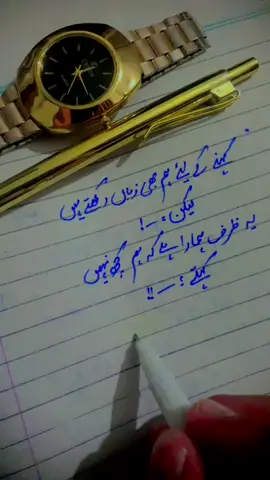 کہنے کے لیئے ہم بھی زباں رکھتے ہیں
لیکن ؛ ـــ !
یہ ظرف ہمارا ہے کہ ہم کچھ نہیں
کہتے ؛ ـــ !!